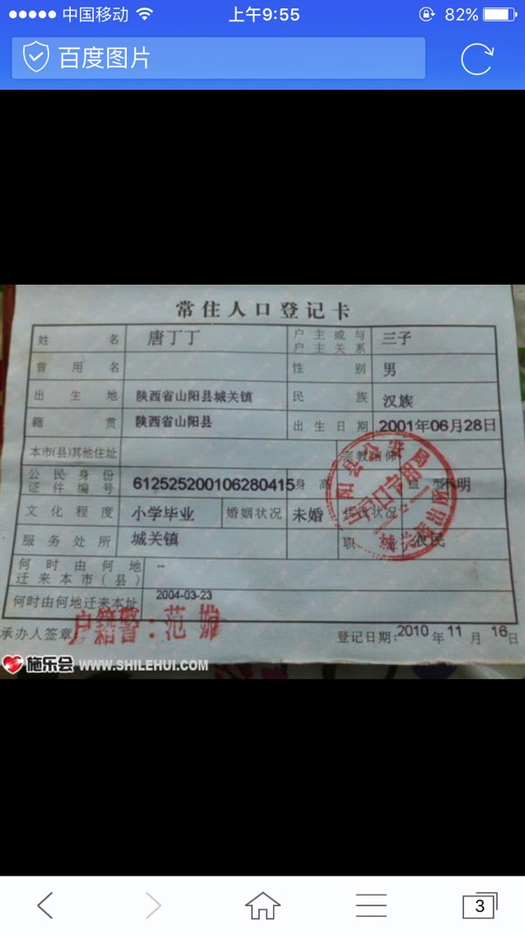 中国移动 上午9:55 82%
百度图片
常住人口登记卡
姓名 唐丁丁 户主或与户主关系 三子
曾用名 性别 男
出生地 陕西省山阳县城关镇 民族 汉族
籍贯 陕西省山阳县 出生日期 2001年06月28日
本市(县)其他住址 宗教信仰
公民身份证件编号 612525200106280415 身高 血型 不明
文化程度 小学毕业 婚姻状况 未婚 兵役状况
服务处所 城关镇 职业 农民
何时由何地迁来本市(县) --
何时由何地迁来本址 2004-03-23
承办人签章: 户籍警:范 登记日期:2010年11月16日
施乐会 WWW.SHILEHUI.COM
3